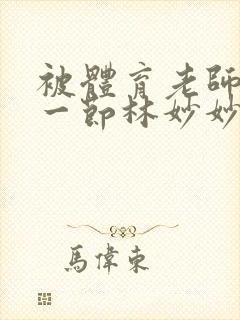 被體育老師
一節林妙妙
馬偉東